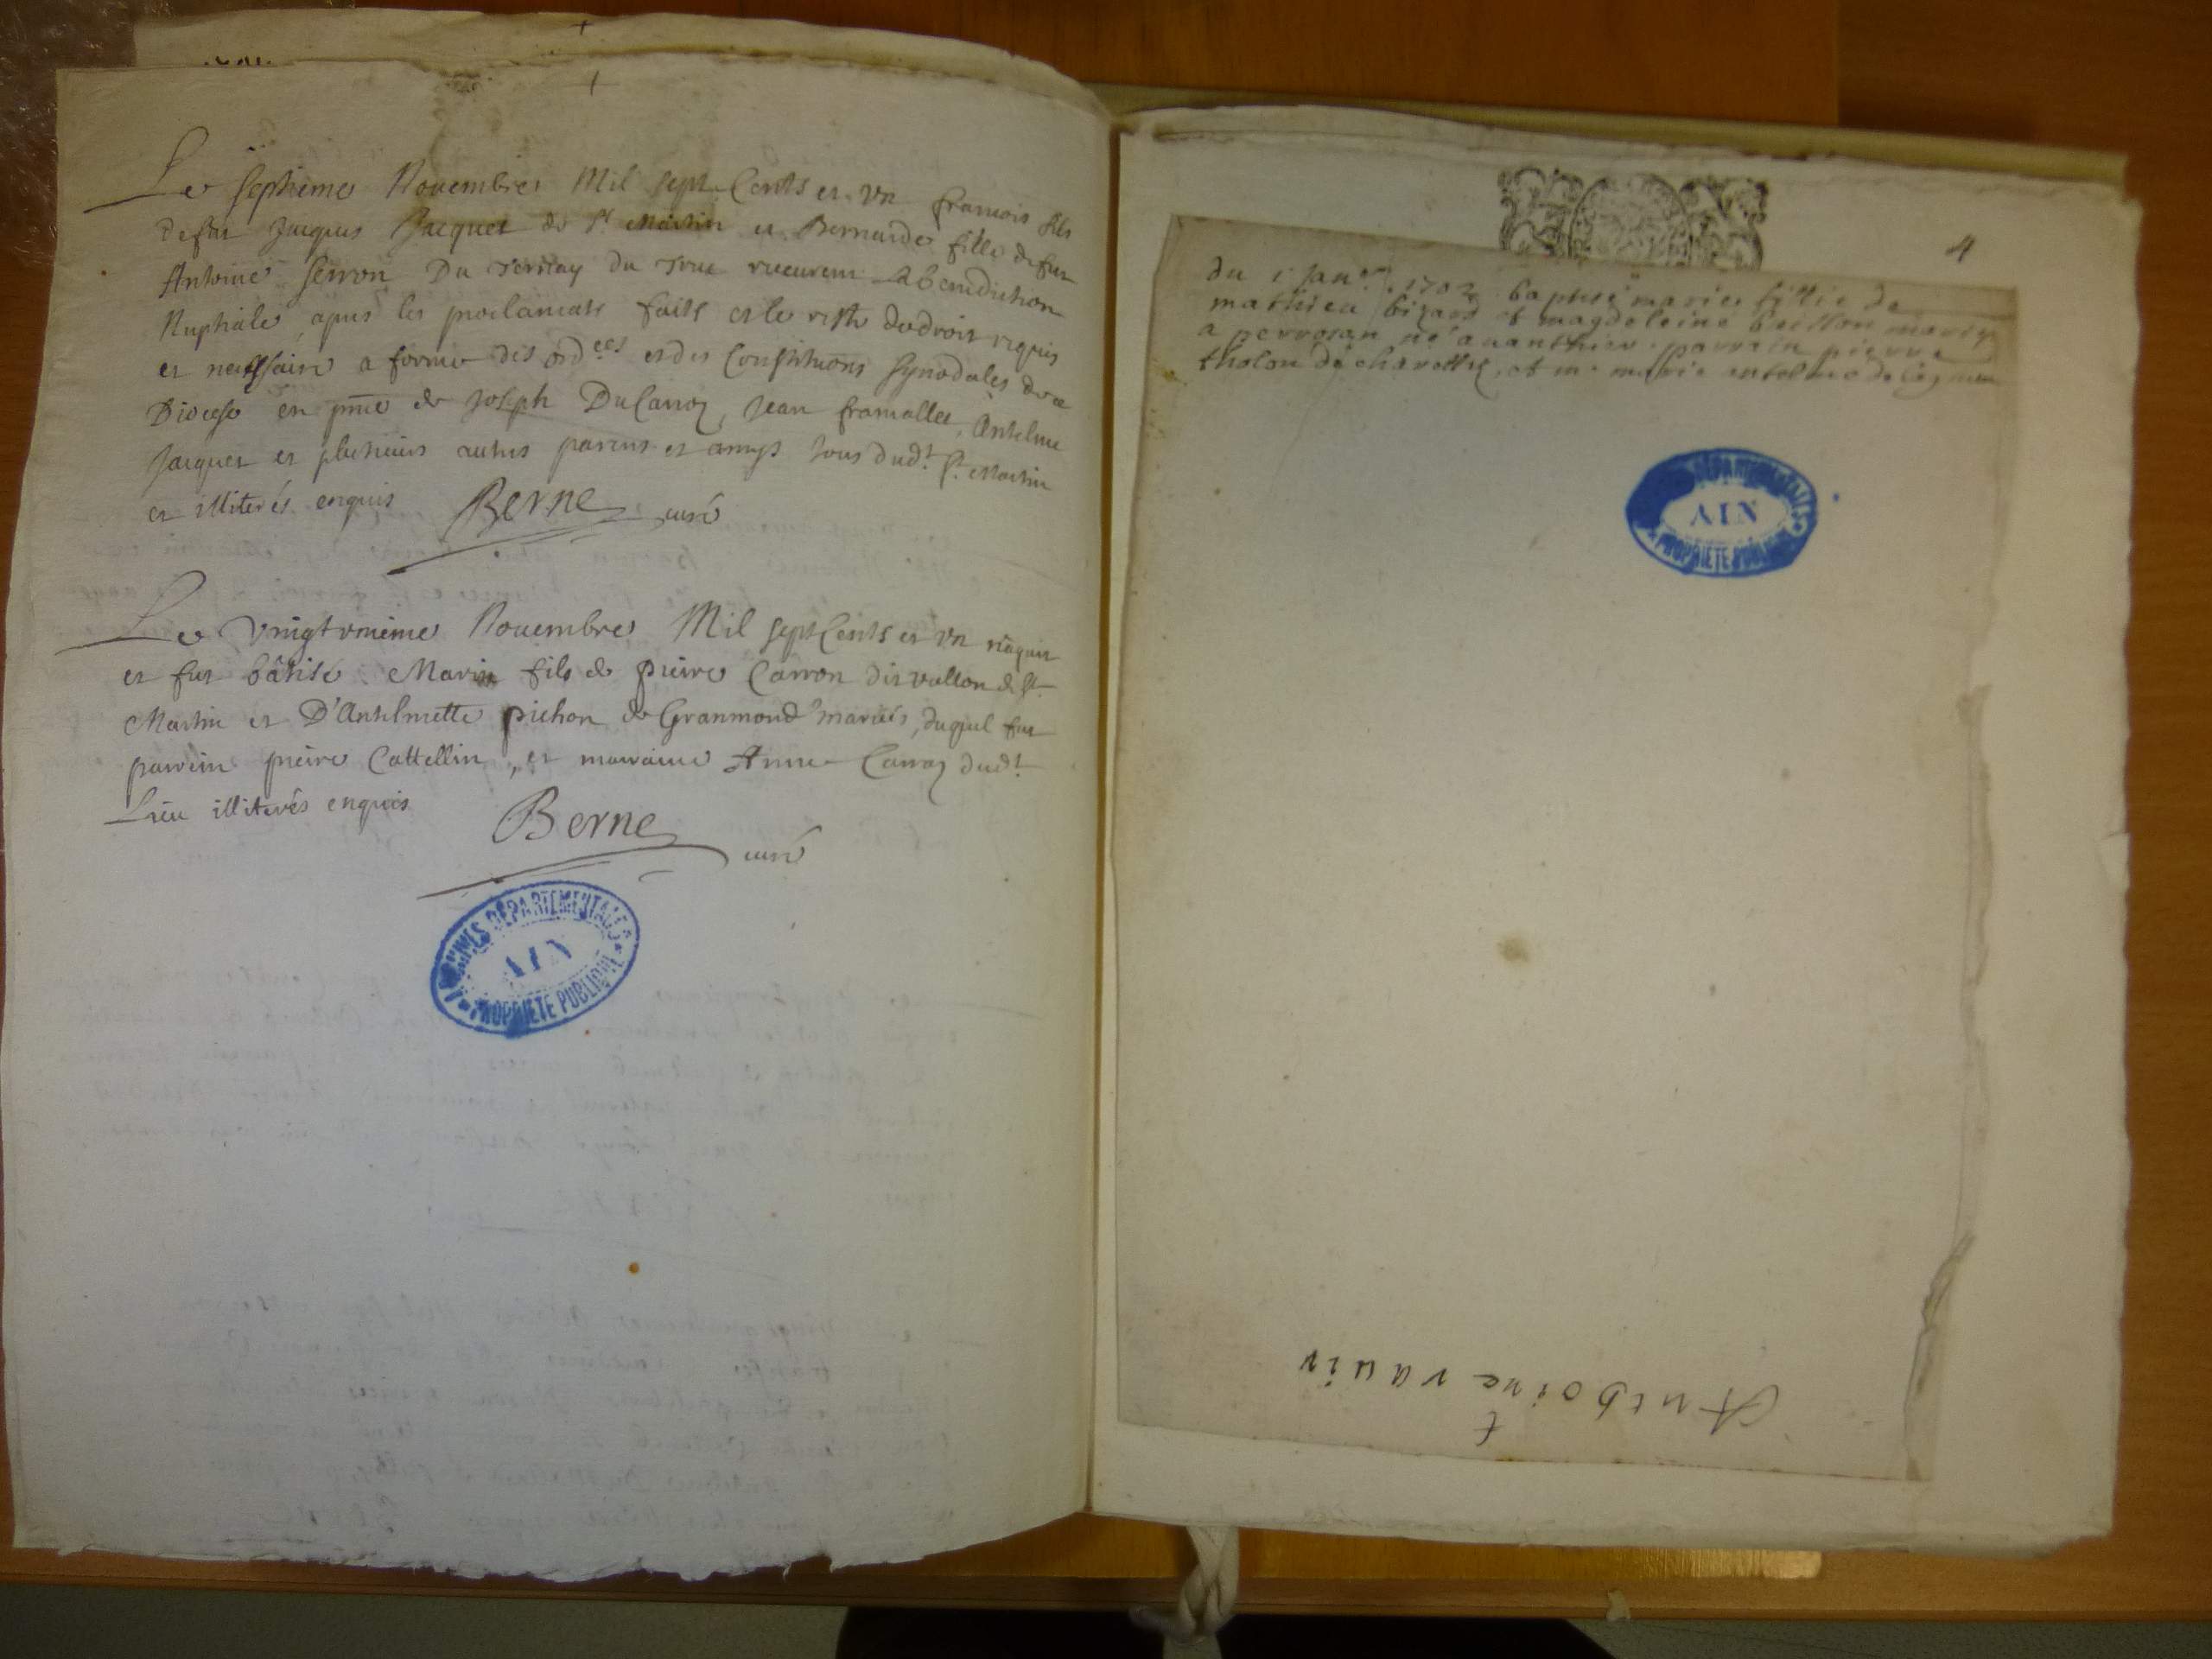 Le septieme Novembre Mil sept Cents et vn francois fils
defut Jacques Jacquet de St Martin et Bernarde fille defut
Antoine Serron Du Ternay du receurent la benediction
Nuptiale apres les proclamats faits et le reste dudroit requis
et necessaire a forme des ordces et des Constitutions Synodales de ce
Diocese en pnce de Joseph DuCarroz, Jean framallet, Antelme
Jacquet et plusieurs autres parens et amys tous dudt St Martin
et illiterés enquis Berne curé
Le vingtvnieme Novembre Mil sept Cents et vn naquit
et fut bâtisé Marin fils de pierre Carron dit vallon de St
Martin et D'Antelmette pichon de Granmond mariés, duquel fut
parrein pierre Cattellin, et marraine Anne Carraz dudt
Lieu illiterés enquis
Berne curé
ARCHIVES DÉPARTEMENTALES
AIN
PROPRIÉTÉ PUBLIQUE
4
du 1 janer 1702 baptisé marie fillie de
mathieu bizard et magdeleine buisson mariez
a perrozan né auanthier parrain pierre
tholon de charette, et me marie antelme de
DÉPARTEMENTALES
AIN
PROPRIÉTÉ PUBLIQUE
Anthoine vauin